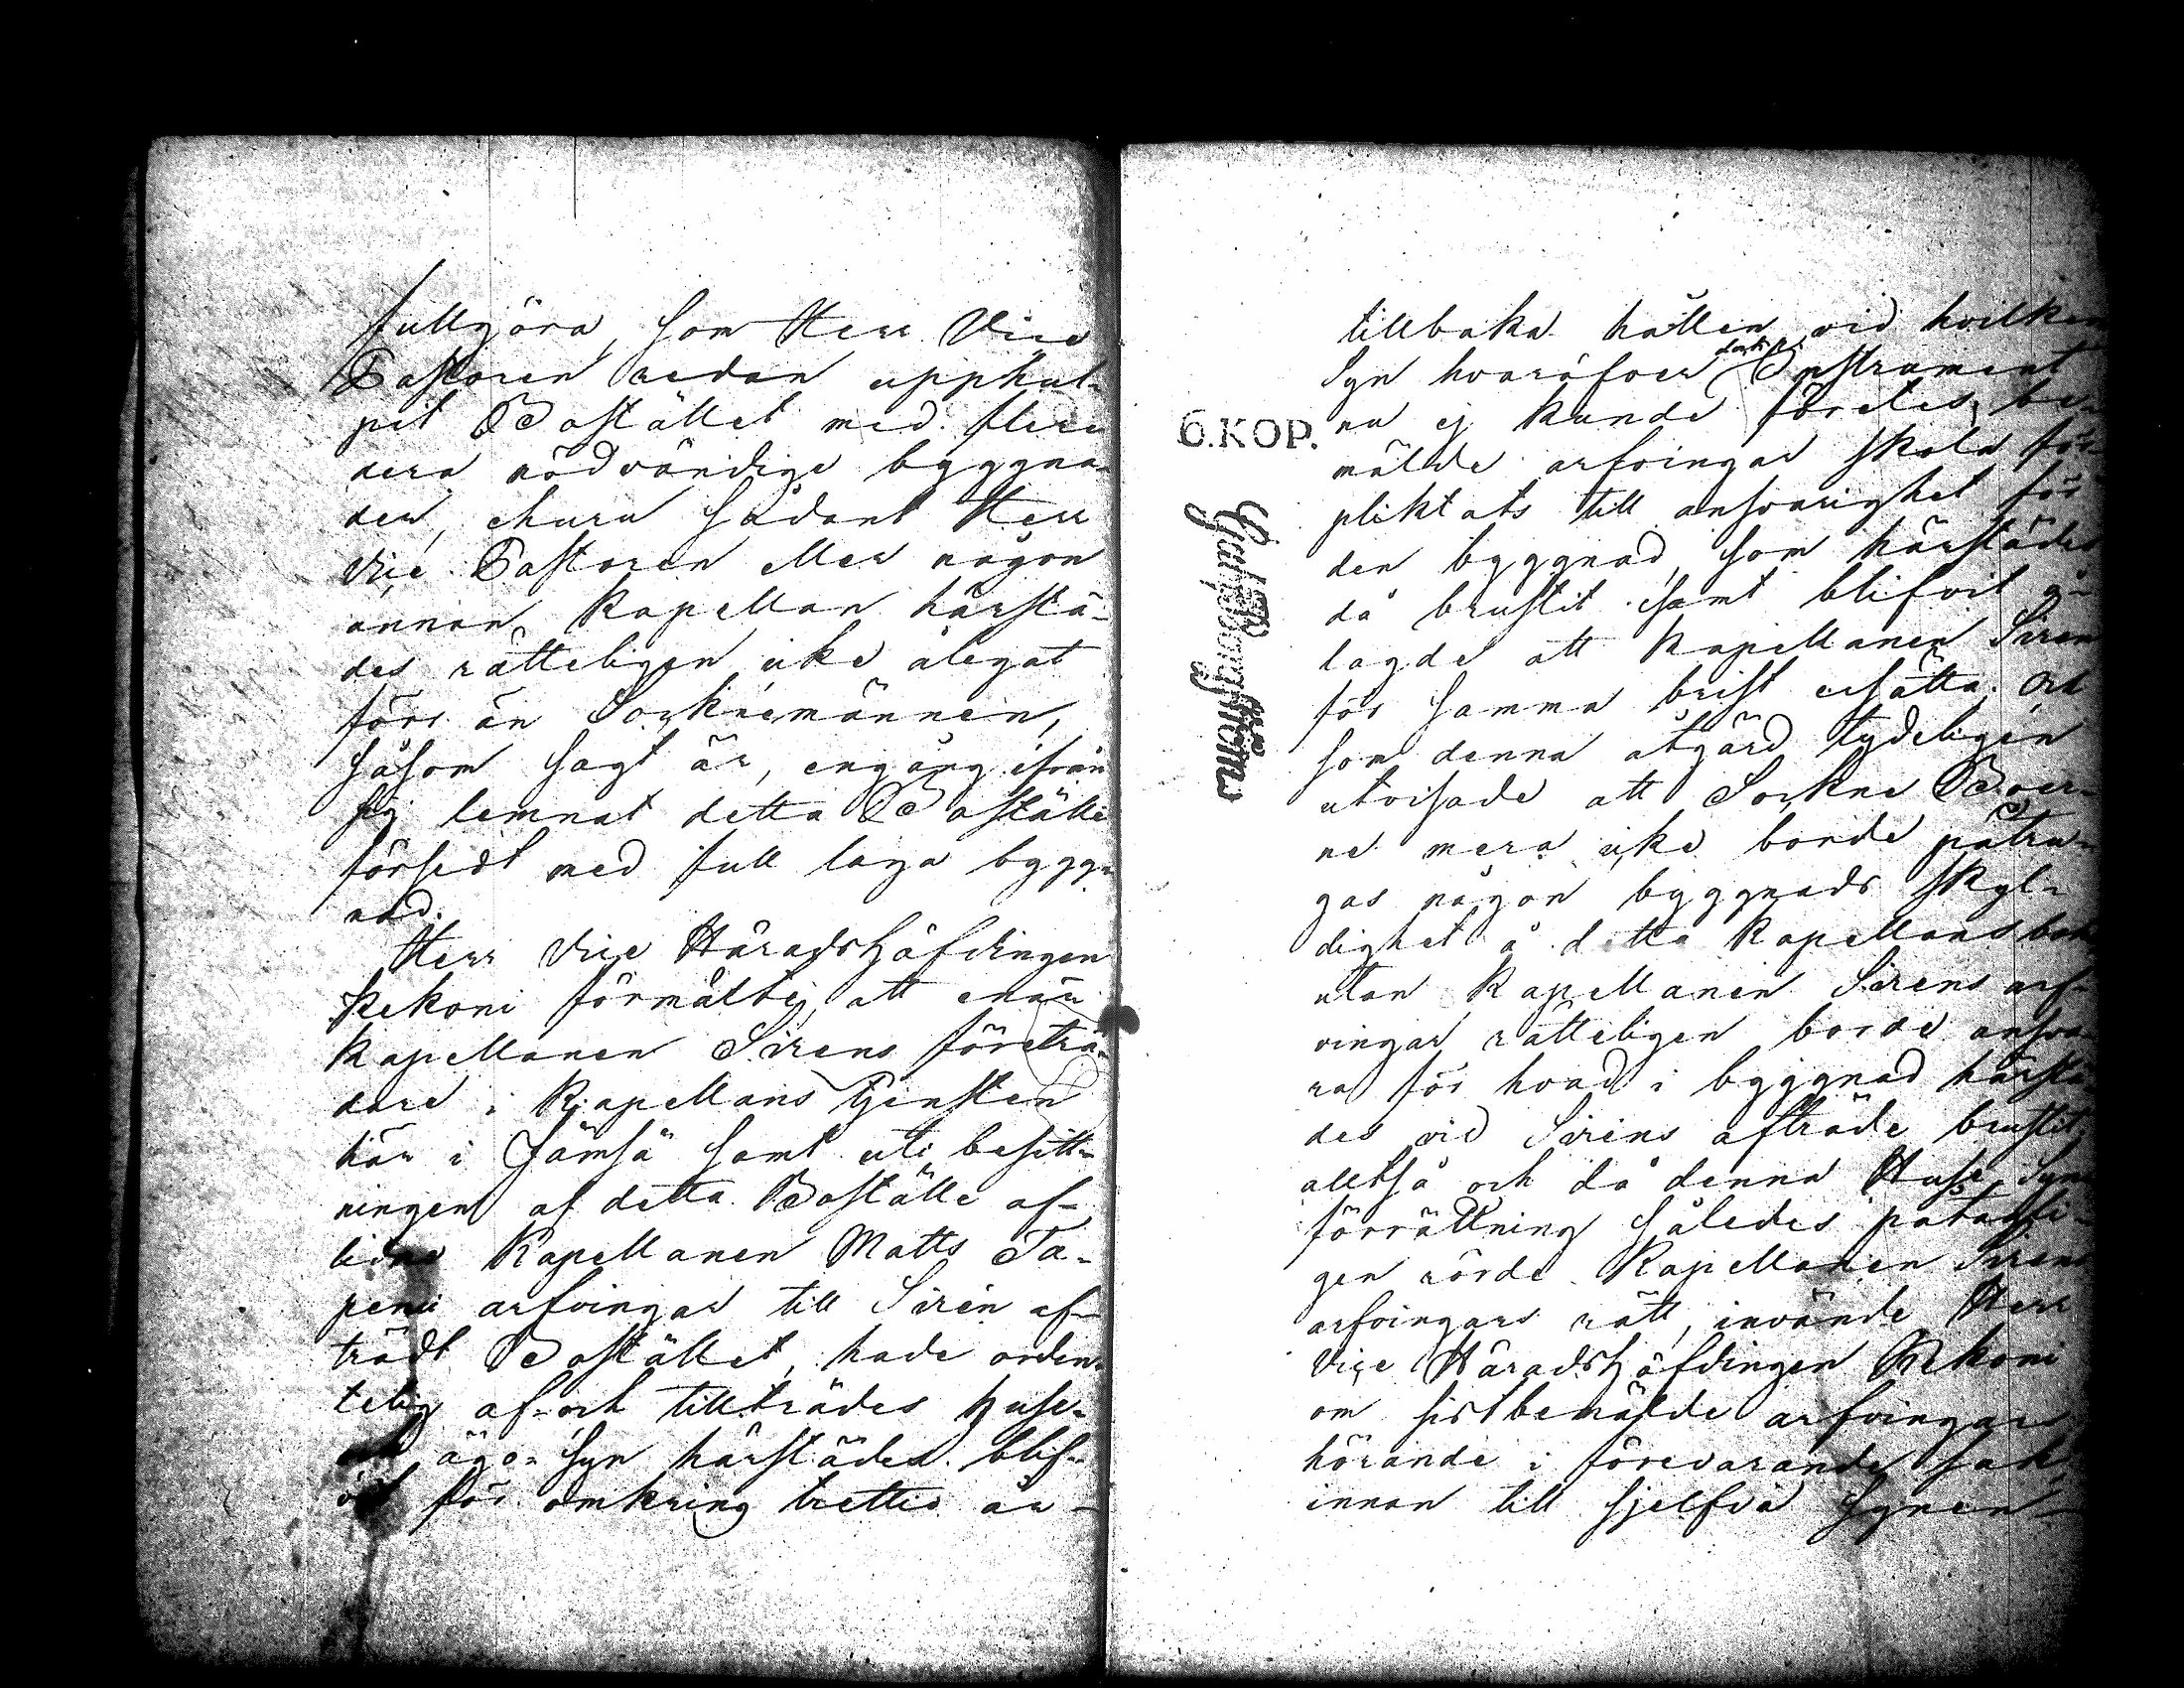 fullgöra, som Herr Vice
Pastoren redan upphul-
pit Bostället med flere
dera nödvändige byggna-
der, ehuru sådant Herr
Vice Pastoren eller någon
annan Kapellan härstä-
des rätteligen icke ålegat
förr än Socknemännen,
såsom sagt är, engång ifrån
sig lemnat detta Boställe
försedt med full laga bygg-
nad.
Herr Vice Häradshöfdingen
Kekoni förmälte, att enär
Kapellanen Sirens företrä-
dare i Kapellans tjensten
här i Jämsä samt uti besitt-
ningen af detta Boställe af-
lidne Kapellanen Matts Ta-
penii arfvingar till Siren af-
trädt Bostället, hade orden-
telig af- och tillträdes huse-
ägo-syn härstädes blif-
vit för omkring trettio år
tillbaka hållen vid hvilken
Syn hvaröfver Instrument
nu ej kunde företes, be-
mälde arfvingar skola för-
pliktats till ansvarighet för
den byggnad, som härstädes
då brustit samt blifvit å-
lagde att Kapellanen Siren
för samma brist ersätta. Och
som denna åtgärd tydeligen
utvisade att Sockne Boer-
ne mera icke borde påtru-
gas någon byggnads skyl-
dighet å detta Kapellans
utan Kapellanen Sirens arf-
vingar rätteligen borde ansva-
ra för hvad i byggnad härstä-
des vid Sirens afträde brustit,
alltså och då denna Huse Syns
förrättning således påtagli-
gen rörde Kapellanen Sirens
arfvingars rätt, invände Herr
Vice Häradshöfdingen Kekoni
om sistbemälde arfvingars
hörande i förevarande sak,
innan till sjelfva Synen
6. KOP.